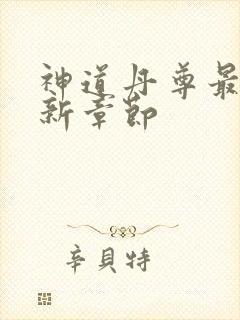 神道丹尊最
新章節
辛貝特